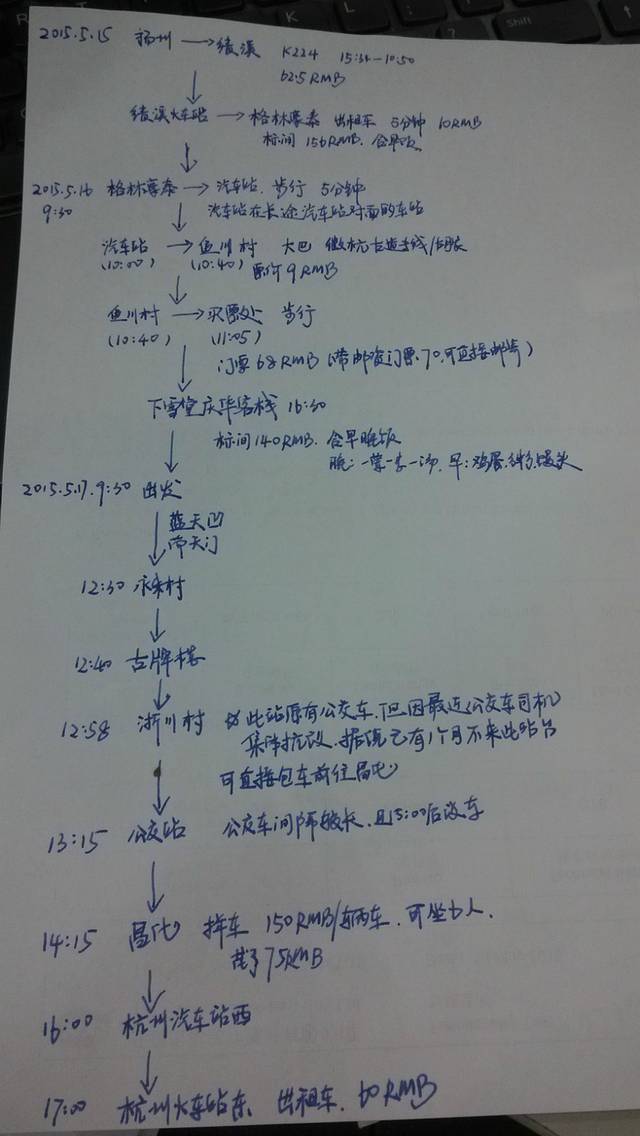 2015.5.15 扬州 → 绩溪 K224 15:34-10:50
62.5RMB
绩溪火车站 → 格林豪泰 出租车 5分钟 10RMB
标间 156RMB. 含早饭
2015.5.16 格林豪泰 → 汽车站. 步行 5分钟
9:30 汽车站在长途汽车站对面的车站
汽车站 → 鱼川村 大巴 徽杭古道专线/
(10:00) (10:40) 票价9RMB
鱼川村 → 买票处 步行
(10:40) (11:05)
门票68RMB (带邮资门票.70.可直接邮寄)
下雪堂庆华客栈 16:30
标间140RMB. 含早晚饭
晚: 一荤一素一汤. 早: 鸡蛋.稀饭.馒头
2015.5.17. 9:30 出发
蓝天凹
南天门
12:30 永来村
12:40 古牌楼
12:58 浙川村 此站原有公交车.但因最近(公交车司机)
集体抗议.据说已有1个月不来此站台
可直接包车前往昌化
13:15 公交站 公交车间隔较长.且15:00后没车
14:15 昌化 拼车 150RMB/辆车.可坐6人.
花了75RMB
16:00 杭州汽车站西
17:00 杭州火车站东. 出租车. 60RMB
Shift